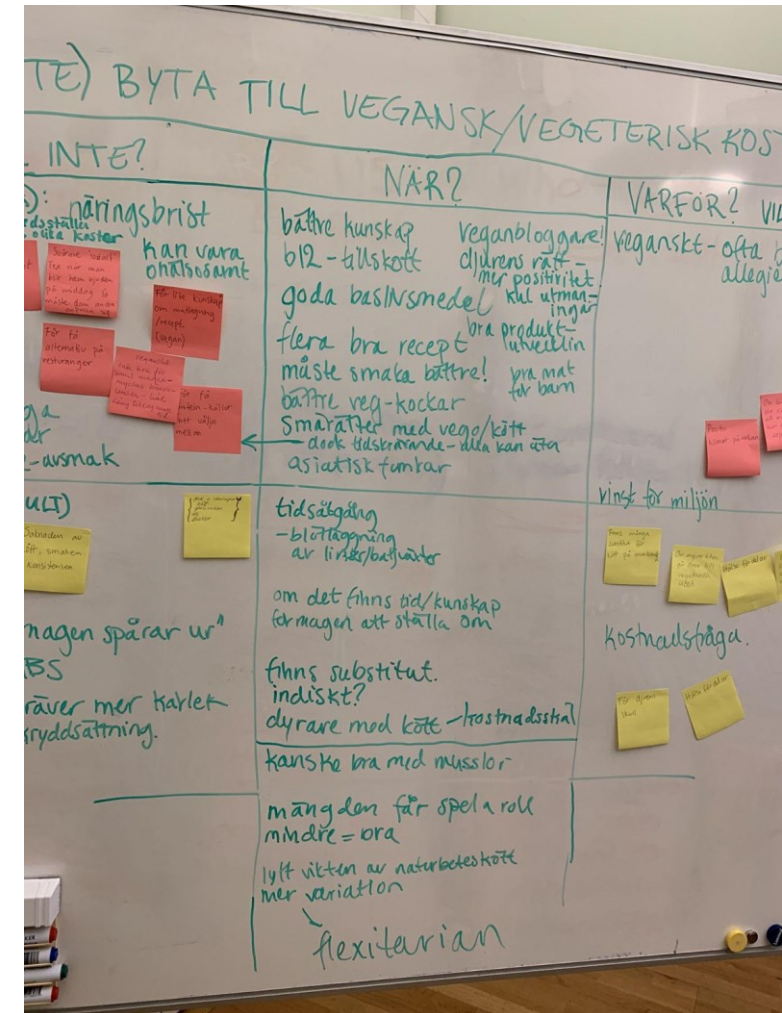 TE) BYTA TILL VEGANSK/VEGETERISK KOST
INTE?
näringsbrist
olika koster
kan vara
ohälsosamt
För lite kunskap
om matlagning
/recept.
(vegan)
För få
alternativ på
resturanger
För få
protein-källor
att välja
mellan
-avsmak
ULT)
smaken
konsistensen
magen spårar ur"
BS
räver mer kärlek
kryddsättning.
NÄR?
bättre kunskap
b12 - tillskott
goda basivsmedel
flera bra recept
måste smaka bättre!
bättre veg-kockar
smårätter med vego/kött
dock tidskrävande - alla kan äta
asiatisk funkar
veganbloggare!
djurens rätt -
mer positivitet
kul utman-
ingar
bra produkt-
utvecklin
bra mat
för barn
tidsåtgång
- blötläggning
av linser/baljväxter
om det finns tid/kunskap
för magen att ställa om
finns substitut.
indiskt?
dyrare med kött - kostnadsskäl
kanske bra med musslor
mängden får spela roll
mindre = bra
lyft vikten av naturbeteskött
mer variation
flexitarian
VARFÖR?
veganskt - ofta
allegie
vinst för miljön
Hälsofördelar
kostnadsfråga.
För djurens
skull
Hälsofördelar